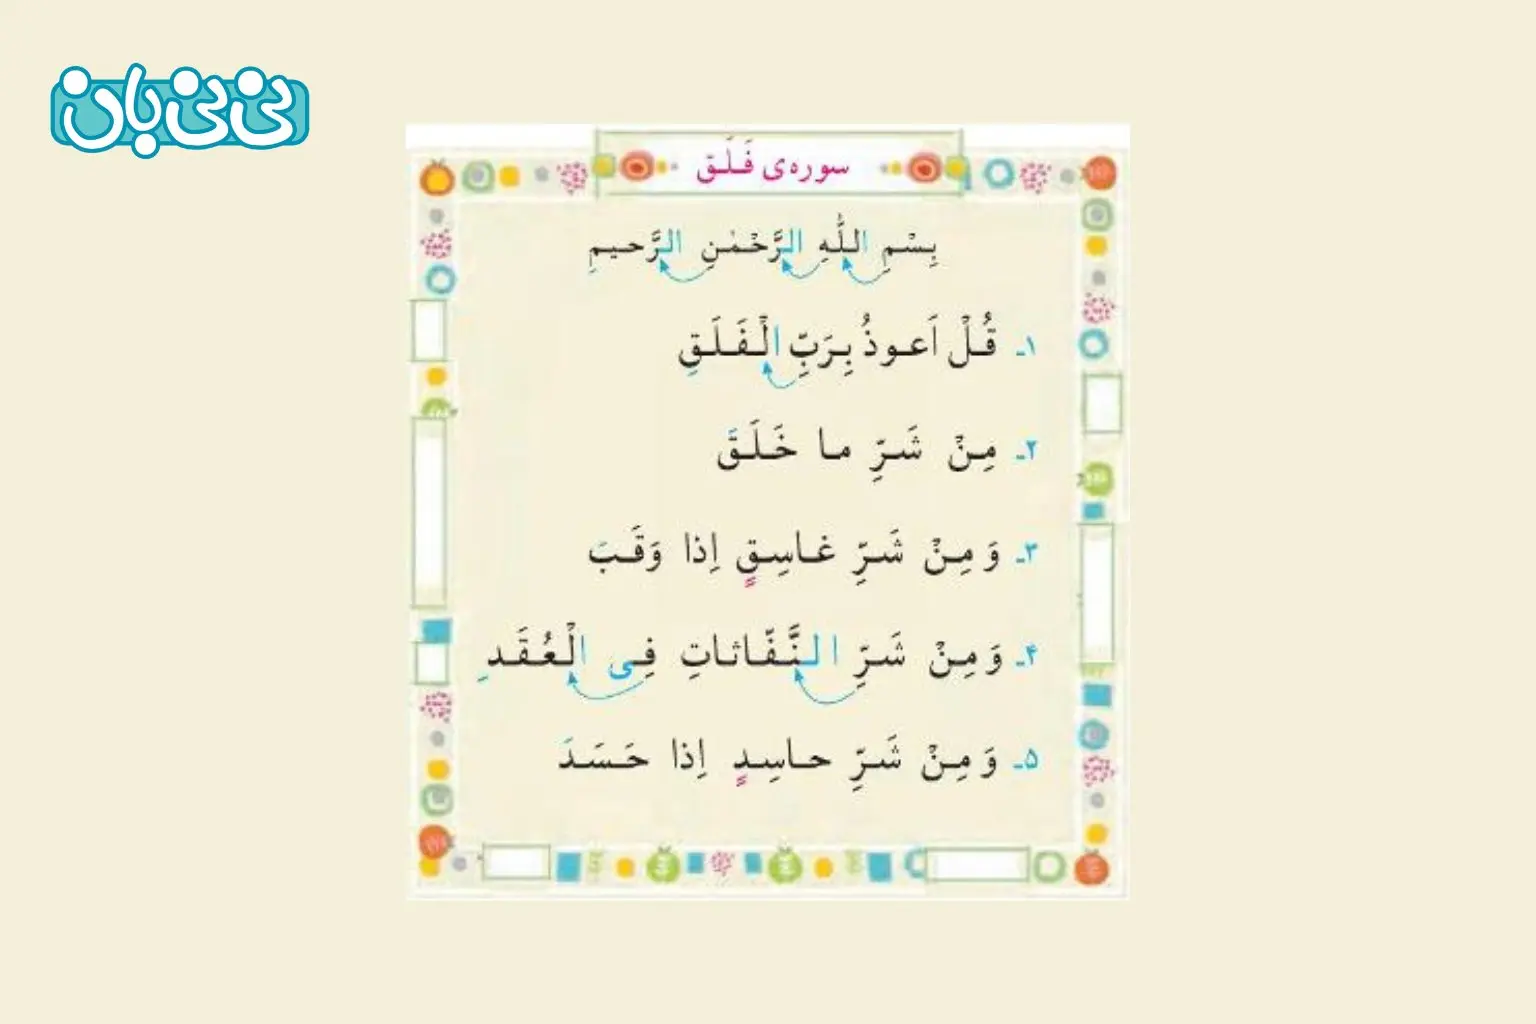 نی نی بان
سوره‌ی فَلَق
بِسْمِ اللّٰهِ الرَّحْمٰنِ الرَّحیمِ
۱ـ قُلْ اَعوذُ بِرَبِّ الْفَلَقِ
۲ـ مِنْ شَرِّ ما خَلَقَ
۳ـ وَ مِنْ شَرِّ غاسِقٍ اِذا وَقَبَ
۴ـ وَ مِنْ شَرِّ النَّفّاثاتِ فِی الْعُقَدِ
۵ـ وَ مِنْ شَرِّ حاسِدٍ اِذا حَسَدَ